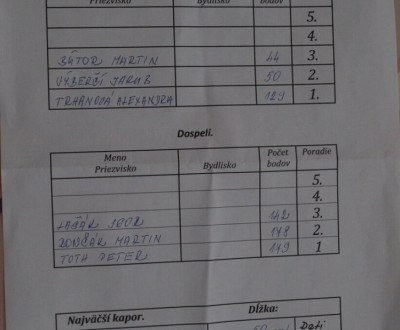 Priezvisko Bydlisko bodov
5.
4.
BÁTOR MARTIN 44 3.
VÝBERČÍ JAKUB 50 2.
TRHANOVÁ ALEXANDRA 129 1.
Dospelí.
Meno Priezvisko Bydlisko Počet bodov Poradie
5.
4.
IGOR 142 3.
RONČÁR MARTIN 148 2.
TOTH PETER 149 1
Najväčší kapor. Dĺžka:
Deti